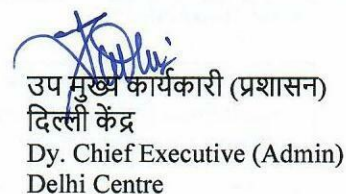 उप मुख्य कार्यकारी (प्रशासन)
दिल्ली केंद्र
Dy. Chief Executive (Admin)
Delhi Centre